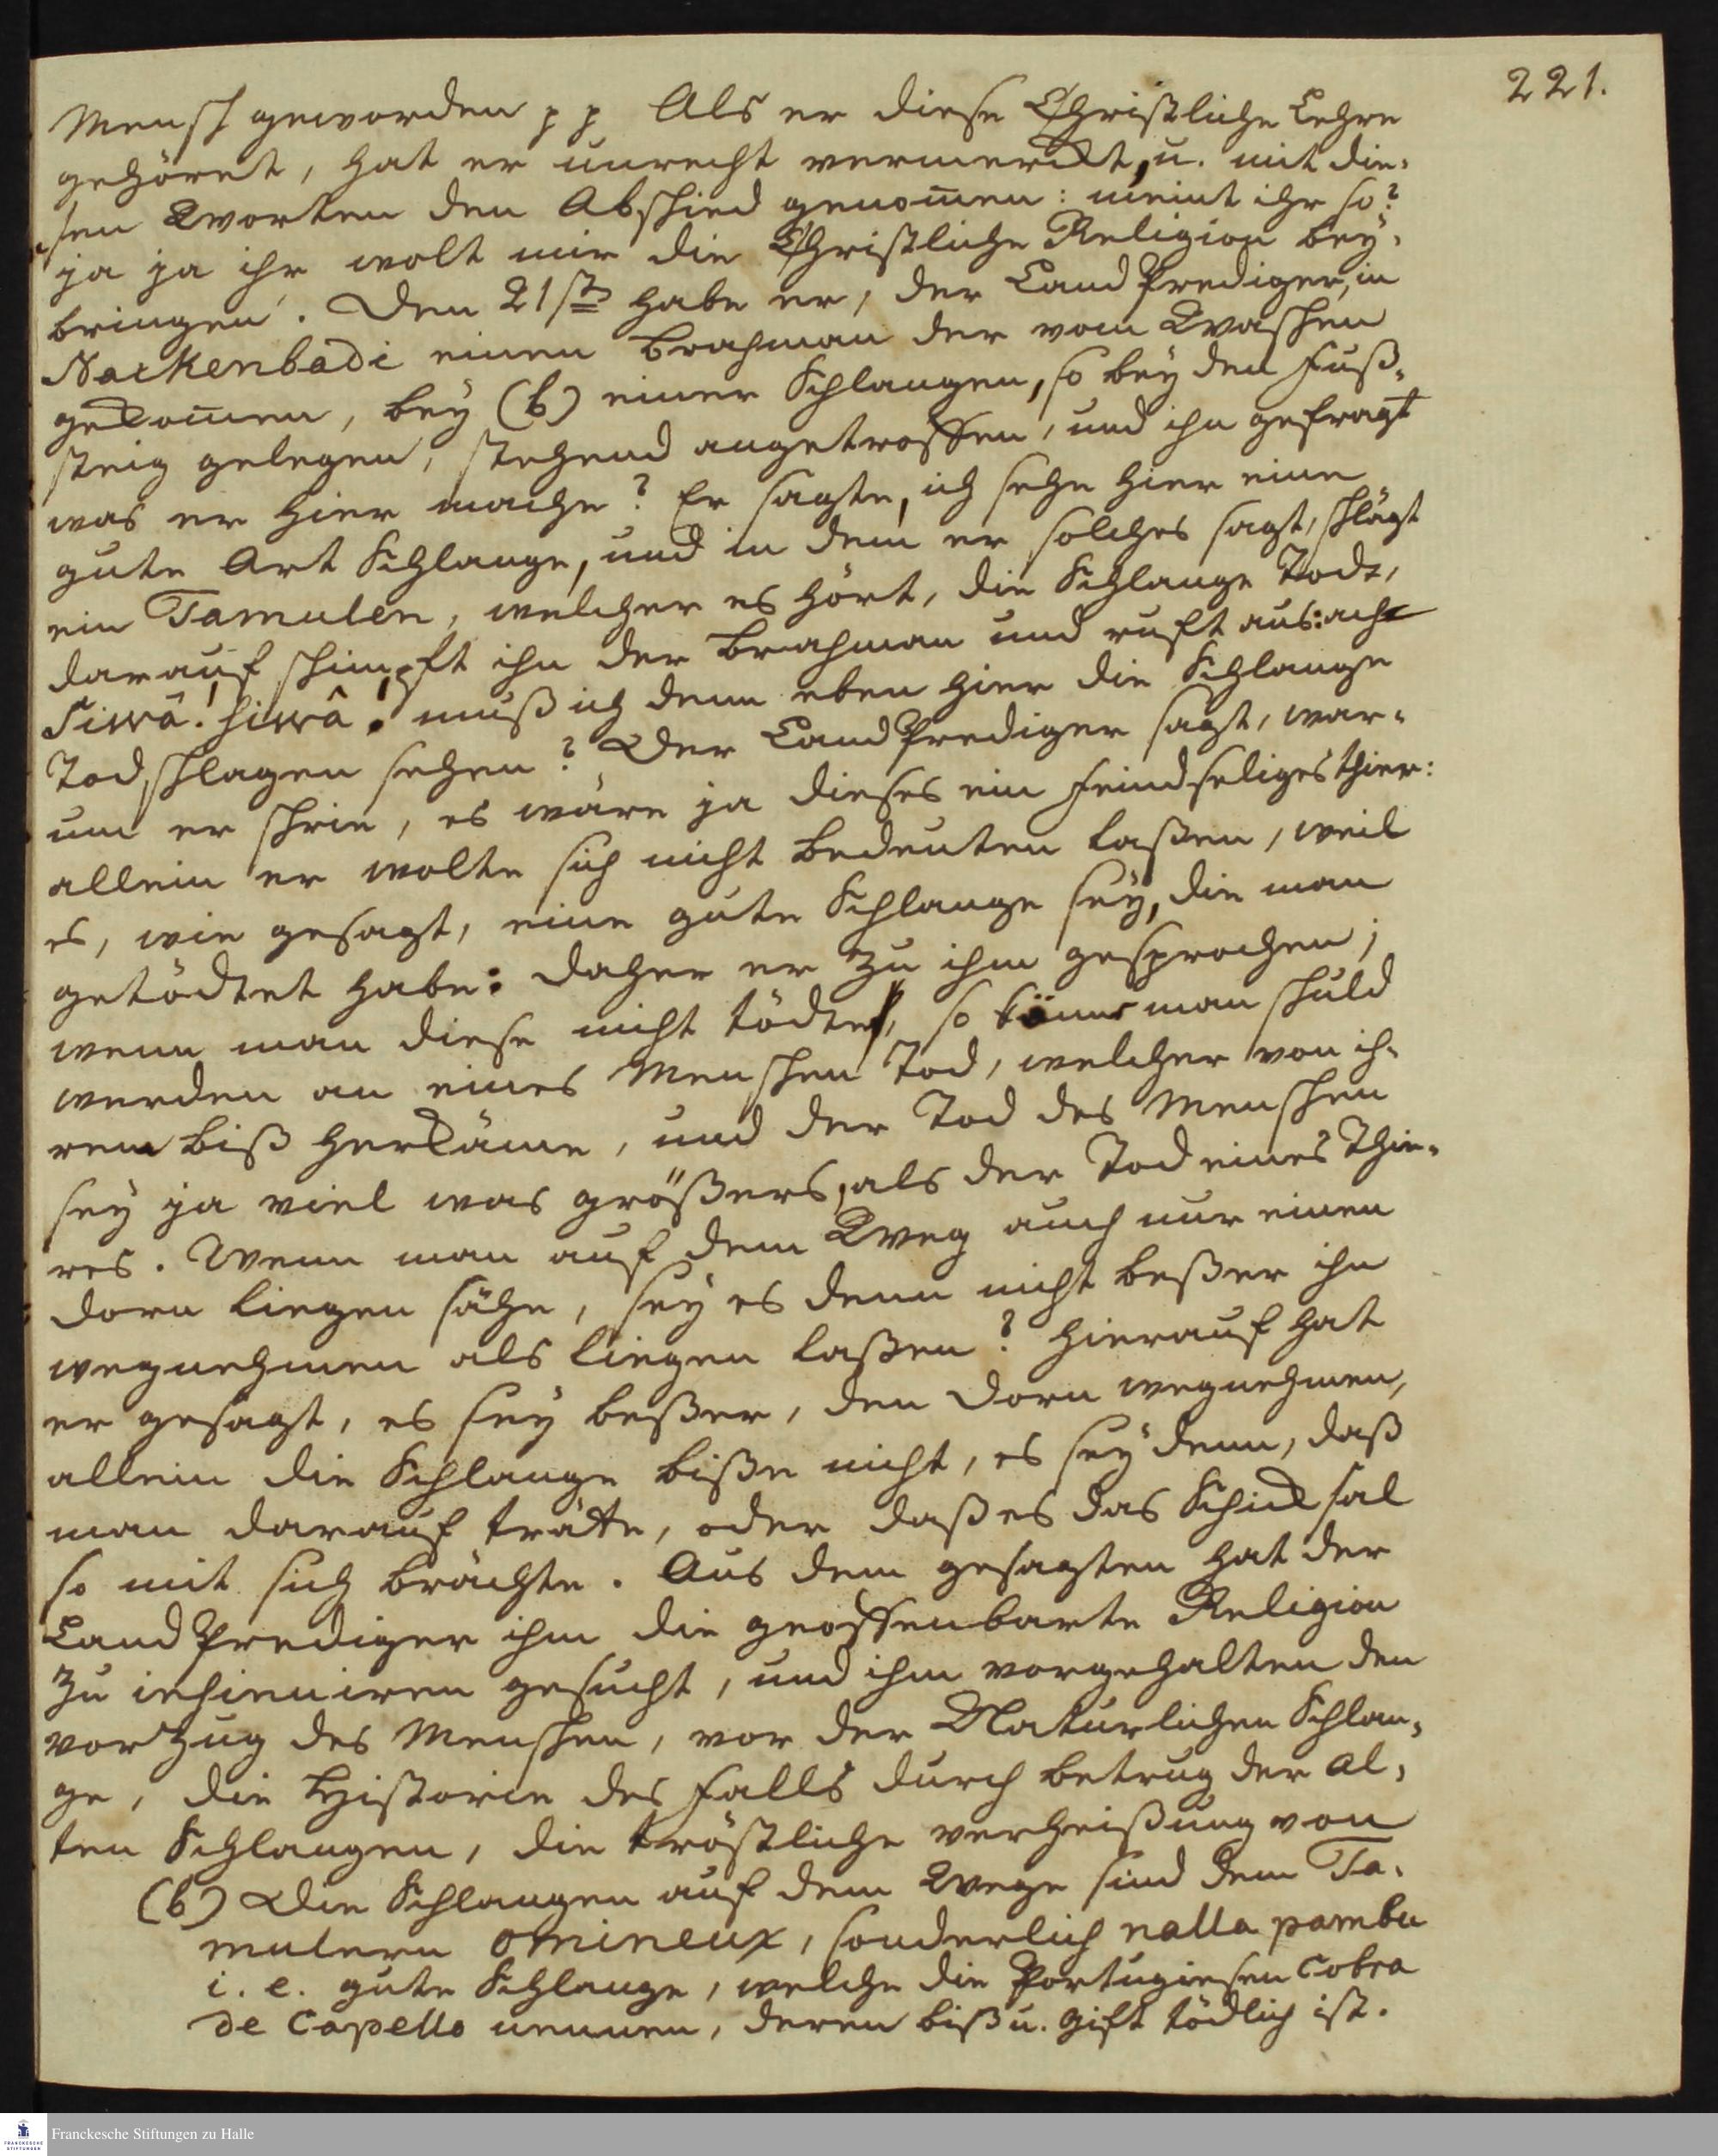 221.
Mensch geworden pp Als er diese Christliche Lehre
gehöret, hat er unrecht vermerckt, u. mit die-
sen Worten den Abschied genom̄en: meint ihr so?
ja ja ihr wolt mir die Christliche Religion bey-
bringen. Den 21st habe er, der Land Prediger, in
Nackenbadi einen Brahman der vom Waschen
gekom̄en, bey (b) einer Schlangen, so bey dem Fuß-
steig gelegen, stehend angetroffen, und ihn gefragt
was er hier mache? Er sagte, ich sehe hier eine
gute Art Schlange, und in dem er solches sagt, schlägt
ein Tamulen, welcher es hört, die Schlange Todt,
darauf schimpft ihn der Brahman und ruft aus: ach
Siwâ! siwâ! muß ich denn eben hier die Schlange
Todschlagen sehen? Der Land Prediger sagt, war-
um er schrie, es wäre ja dieses ein feindseliges Thier:
allein er wolte sich nicht bedeuten laßen, weil
es, wie gesagt, eine gute Schlange sey, die man
getödtet habe: daher er zu ihm gesprochen;
wenn man diese nicht tödte, so könne man schuld
werden an eines Menschen Tod, welcher von ih-
rem Biß herkäme, und der Tod des Menschen
sey ja viel was größers, als der Tod eines Thie-
res. Wenn man auf dem Weg auch nur einen
Dorn liegen sähe, sey es denn nicht beßer ihn
wegnehmen als liegen laßen? Hierauf hat
er gesagt, es sey beßer, den Dorn wegnehmen,
allein die Schlange biße nicht, es sey denn, daß
man darauf träte, oder daß es das Schicksal
so mit sich brächte. Aus dem gesagten hat der
Land Prediger ihm die geoffenbarte Religion
zu insinuiren gesucht, und ihm vorgehalten den
vorzug des Menschen, vor der Natürlichen Schlan-
ge, die Historie des Falls durch betrug der al-
ten Schlangen, die tröstliche verheißung von
(b) Die Schlangen auf dem Wege sind dem Ta-
mulern omineux, sonderlich nalla pambu
i. e. gute Schlange, welche die Portugiesen Cobra
de Capello nennen, deren biß u. Gift tödlich ist.
Franckesche Stiftungen zu Halle
FRANCKESCHE
STIFTUNGEN